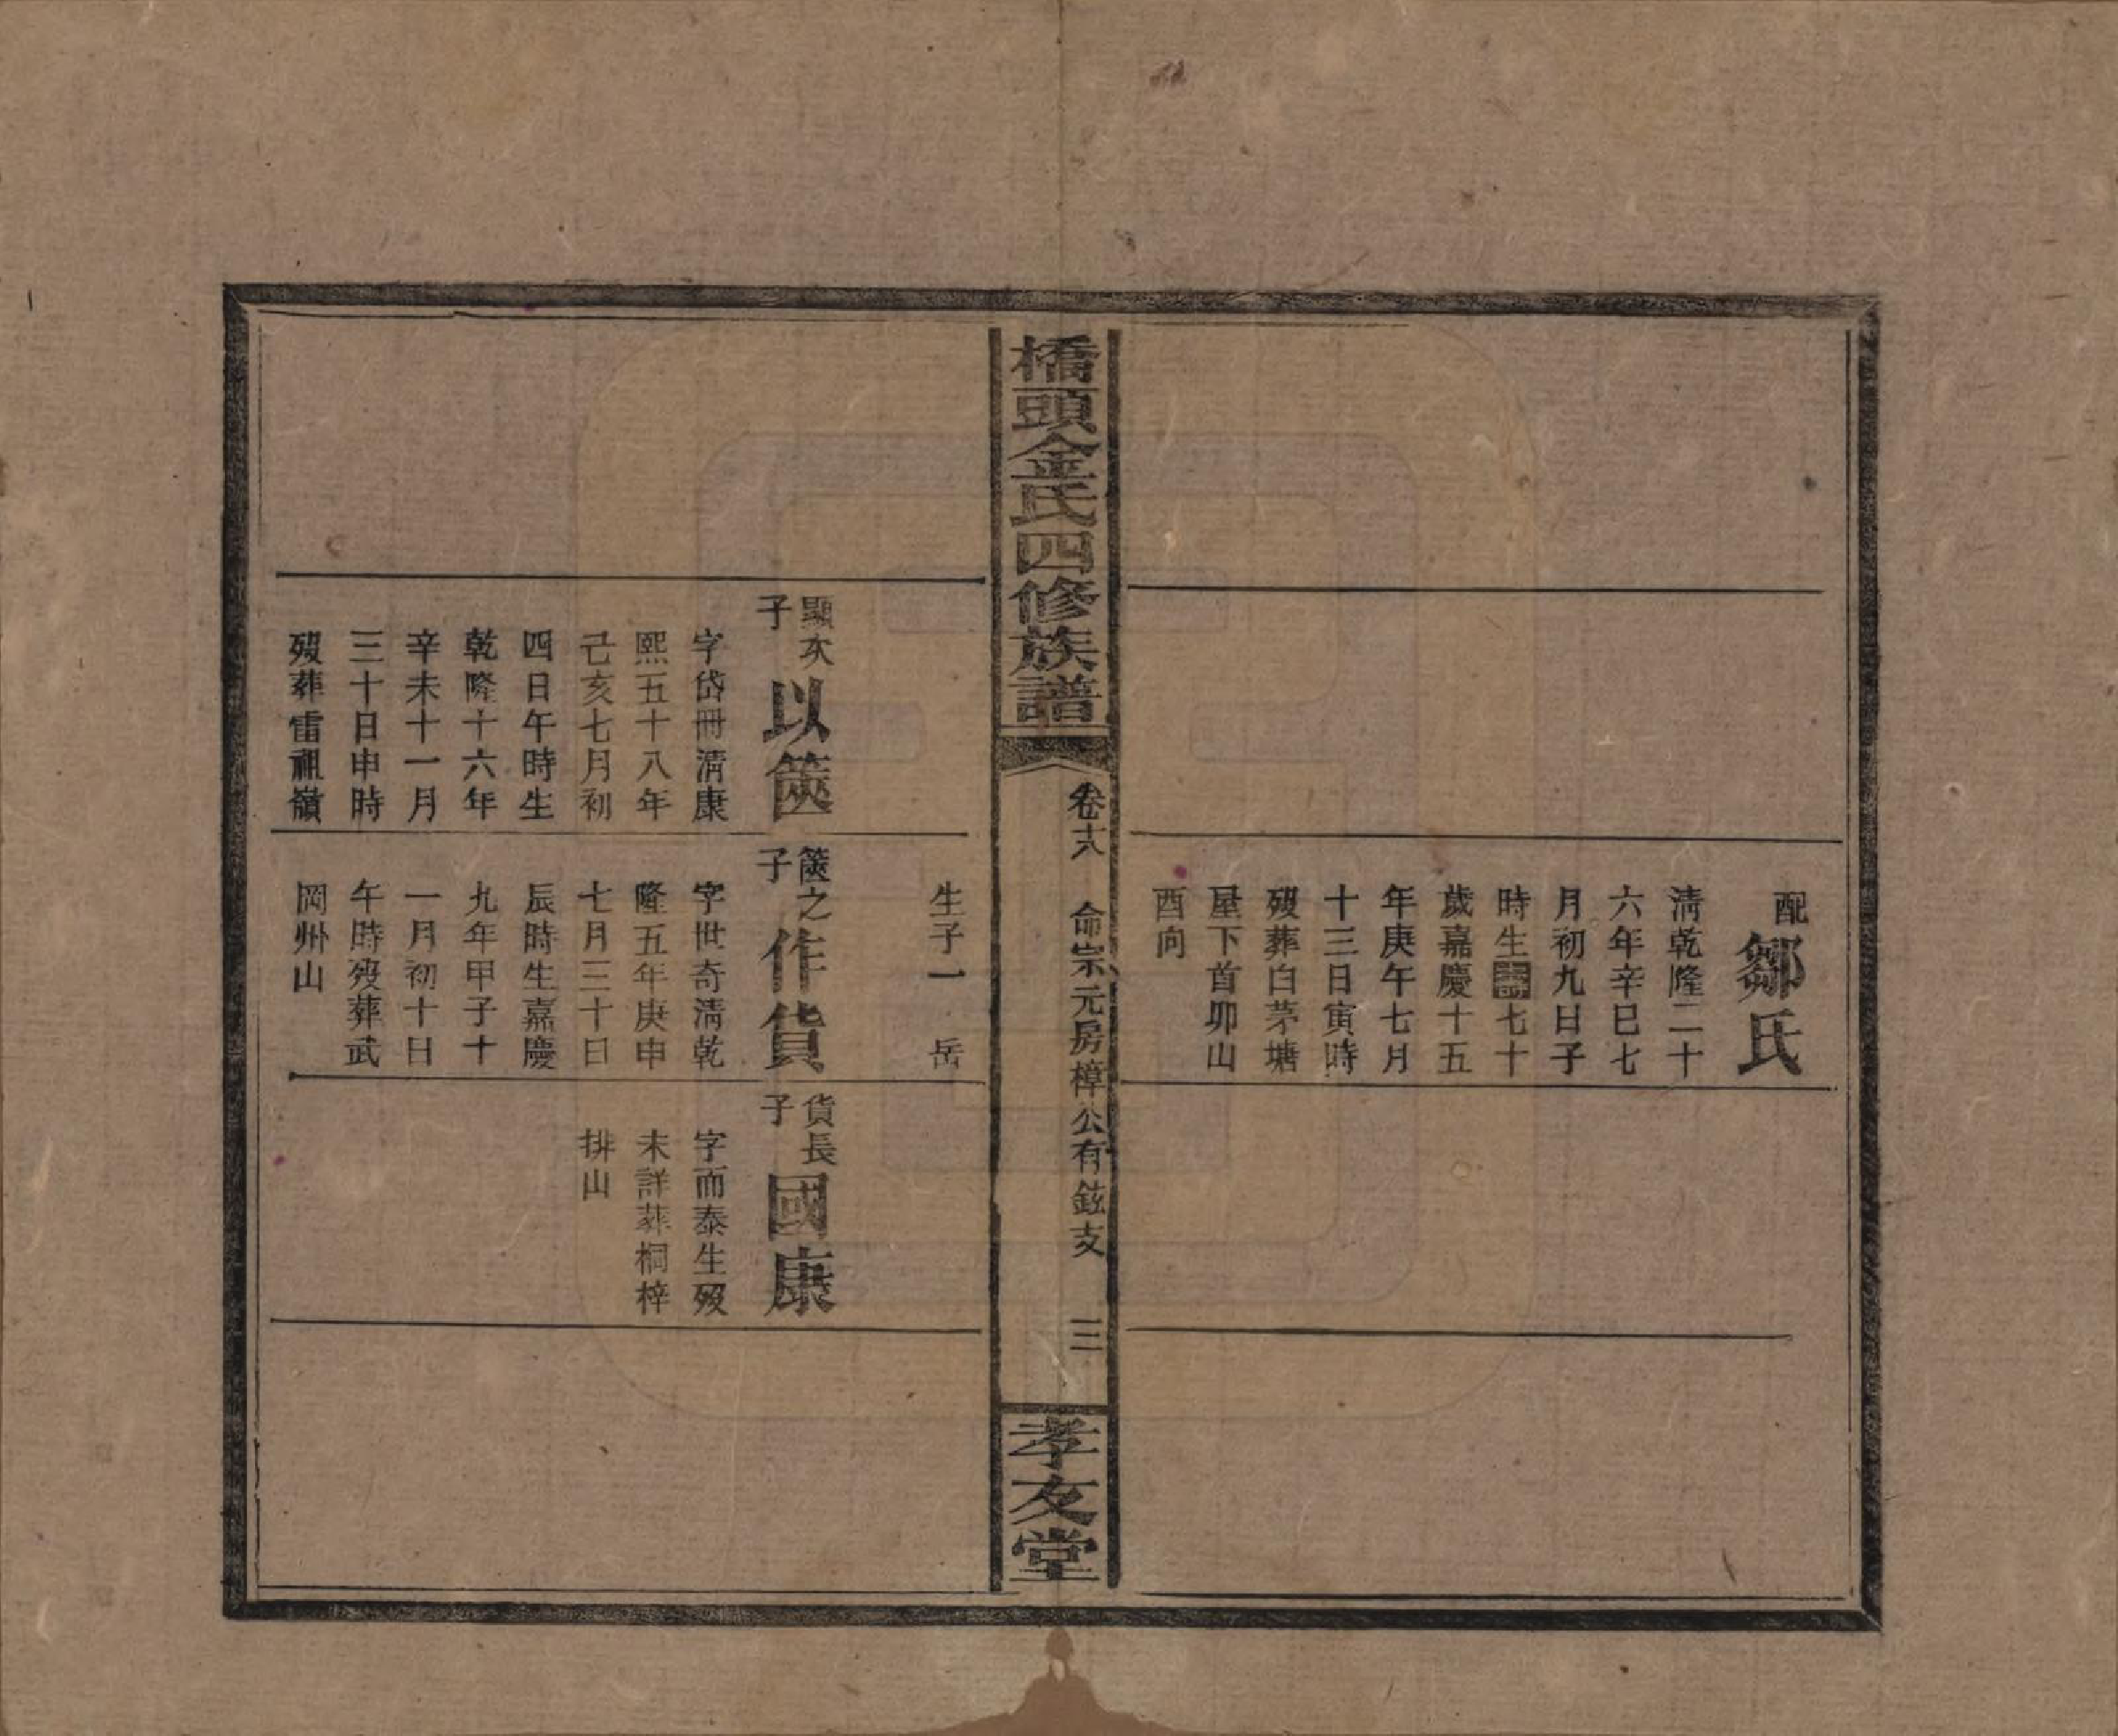 配
鄒氏
清乾隆二十
六年辛巳七
月初九日子
時生壽七十
歲嘉慶十五
年庚午七月
十三日寅時
歿葬白茅塘
屋下首卯山
酉向
橋頭金氏四修族譜
卷十六 命宗元房樟公有鉉支 三
孝友堂
生子一 岳
顯次
子
以篋
字岱冊淸康
熙五十八年
己亥七月初
四日午時生
乾隆十六年
辛未十一月
三十日申時
歿葬雷祖嶺
篋之
子
作貨
字世奇淸乾
隆五年庚申
七月三十日
辰時生嘉慶
九年甲子十
一月初十日
午時歿葬武
岡州山
貨長
子
國康
字而泰生歿
未詳葬桐梓
排山